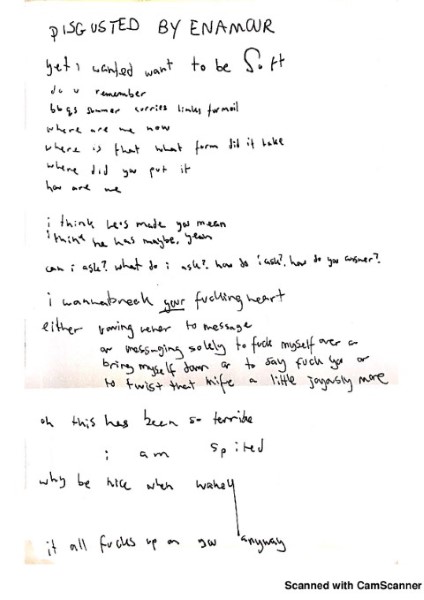 DISGUSTED BY ENAMOUR
yet i wanted want to be Soft
do u remember
summer carries links
where are we now
where is that what form did it take
where did you put it
how are me
i think he's made you mean
i think he has maybe, yeah
can i ask? what do i ask? how do i ask? how do you answer?
i wannabreak your fucking heart
either to message
or messaging solely to fuck myself over or
bring myself down or to say fuck you or
to twist that knife a little joyously more
oh this has been so terrible
i am spited
why be nice when
it all fucks up on you anyway
Scanned with CamScanner